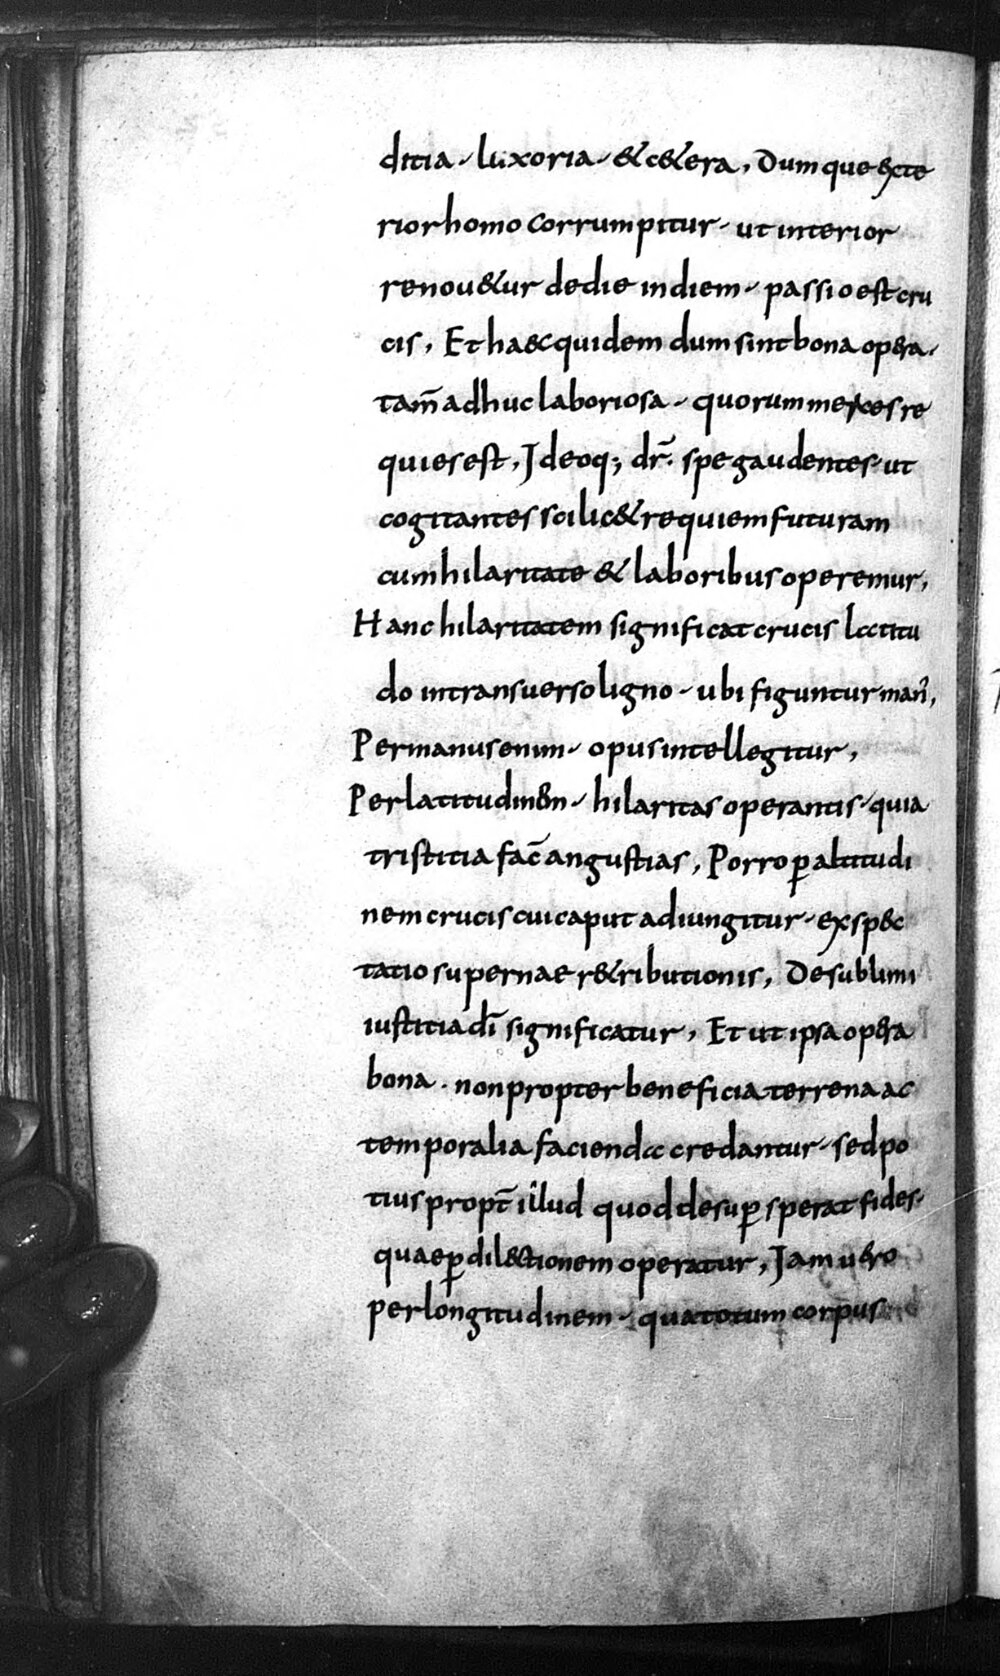 ditia · luxoria · & c&era, Dumque exte
rior homo corrumpitur · ut interior
renou&ur de die in diem · passio est cru
cis, Et haec quidem dum sint bona opera ·
tam̄ adhuc laboriosa · quorum merces re
quies est, Ideoq; dr̄. spe gaudentes · ut
cogitantes scilic& requiem futuram
cum hilaritate & laboribus operemur,
Hanc hilaritatem significat crucis latitu
do in transuerso ligno · ubi figuntur man̄,
Per manus enim · opus intellegitur,
Per latitudinem · hilaritas operantis · quia
tristitia fac̄ angustias, Porro ꝑ altitudi
nem crucis cui caput adiungitur · exspec
tatio supernae r&ributionis, De sublimi
iustitia dī significatur, Et ut ipsa opera
bona · non propter beneficia terrena ac
temporalia facienda credantur · sed po
tius propt̄ illud quod desuꝑ sperat fides ·
quae ꝑ dilectionem operatur, Iam uero
per longitudinem · qua totum corpus